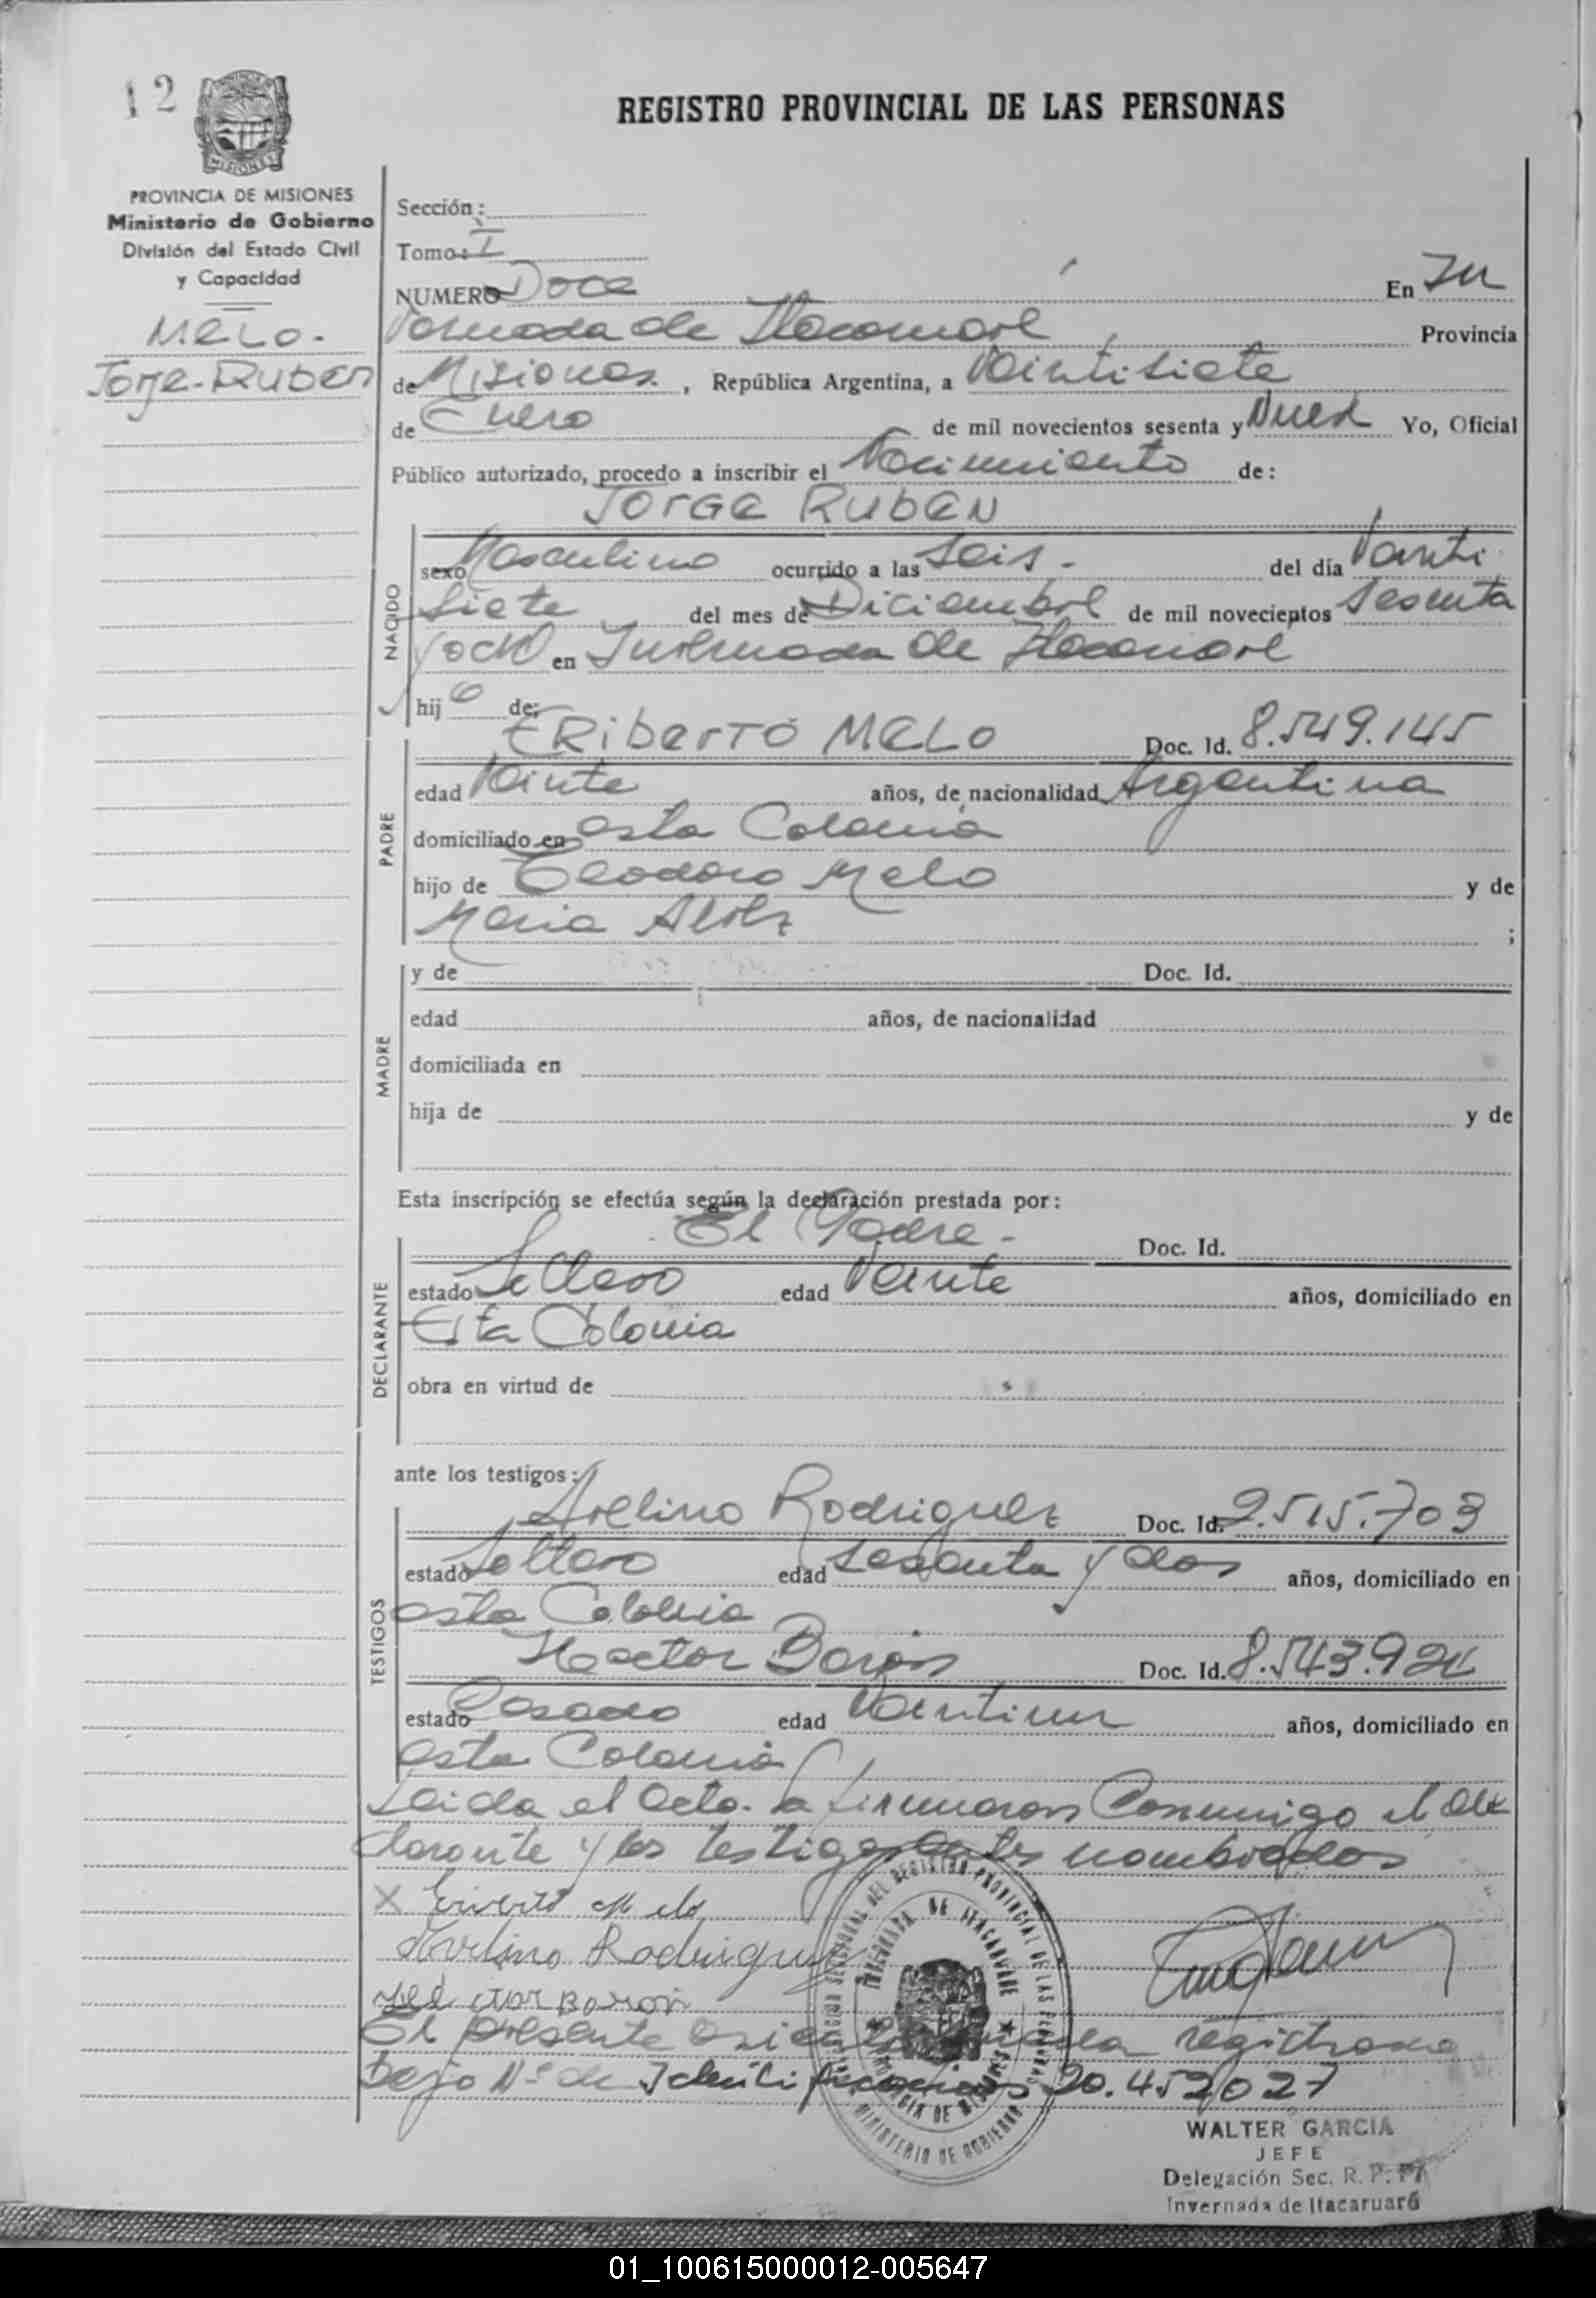 12
REGISTRO PROVINCIAL DE LAS PERSONAS
MISIONES
PROVINCIA DE MISIONES
Ministerio de Gobierno
División del Estado Civil
y Capacidad
MELO.
Jorge-Ruben
Sección:
Tomo: I
NUMERO Doce En In
vernada de Itacaruaré, Provincia
de Misiones, República Argentina, a Veintisiete
de Enero de mil novecientos sesenta y Nueve Yo, Oficial
Público autorizado, procedo a inscribir el Nacimiento de:
JORGE RUBEN
NACIDO
sexo Masculino ocurrido a las Seis.- del día Veinti
siete del mes de Diciembre de mil novecientos sesenta
y ocho en Invernada de Itacaruaré
hijo de:
PADRE
ERIBERTO MELO Doc. Id. 8.549.145
edad Veinte años, de nacionalidad Argentina
domiciliado en esta Colonia
hijo de Teodoro Melo y de
Maria ;
MADRE
y de Doc. Id.
edad años, de nacionalidad
domiciliada en
hija de y de
Esta inscripción se efectúa según la declaración prestada por:
DECLARANTE
El Padre.- Doc. Id.
estado Soltero edad Veinte años, domiciliado en
Esta Colonia
obra en virtud de
ante los testigos:
TESTIGOS
Avelino Rodriguez Doc. Id. 2.515.703
estado Soltero edad sesenta y dos años, domiciliado en
esta Colonia
Hector Doc. Id. 8.543.924
estado Casado edad Veintiun años, domiciliado en
esta Colonia
Leida el Acta. la firmaron Conmigo el de
clarante y los testigos antes nombrados
X Eriverto Melo
Avelino Rodriguez
Hector
El presente registrado
bajo Nº de Identificacion 20.452027
DELEGACION SECCIONAL DEL REGISTRO PROVINCIAL DE LAS PERSONAS
INVERNADA DE ITACARUARE
PROVINCIA DE MISIONES
MINISTERIO DE GOBIERNO
WALTER GARCIA
JEFE
Delegación Sec. R. P. P.
Invernada de Itacaruaré
01_100615000012-005647